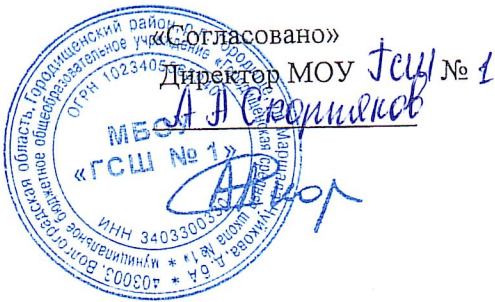 «Согласовано»
Директор МОУ ГСШ № 1
А А Скорняков
403003. Волгоградская область, Городищенский район, р.п. Городище, Маршала Чуйкова, д. 6А
* муниципальное бюджетное общеобразовательное учреждение «Городищенская средняя школа № 1»
ОГРН 1023405
ИНН 3403300
МБОУ
«ГСШ № 1»